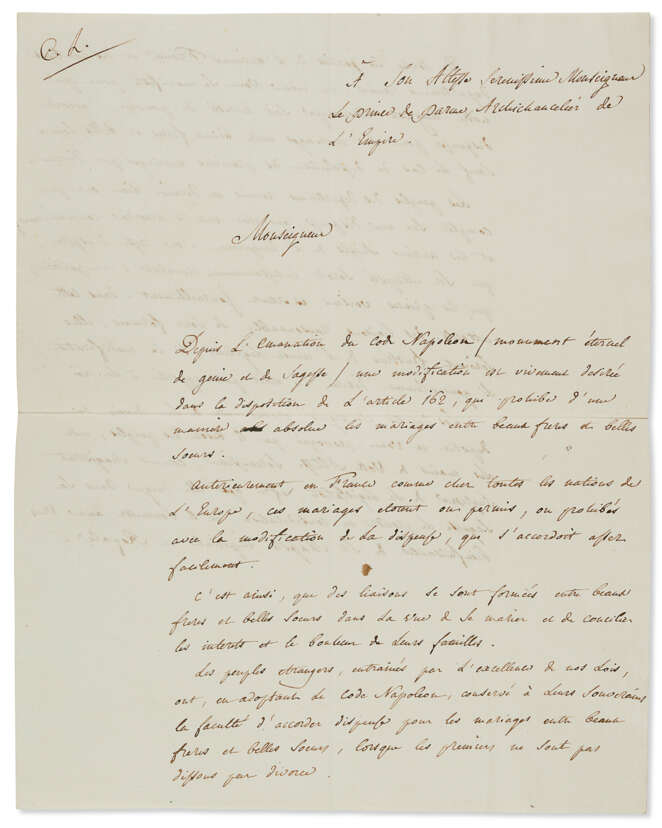 C. L.
À Son Altesse Serenissime Monseigneur
Le prince de parme, Archichancelier de
L'Empire.
Monseigneur
Depuis L'Emanation du code Napoleon (monument éternel
de genie et de Sagesse) une modification est vivement desirée
dans la disposition de L'article 162, qui prohibe d'une
maniere absolue les mariages entre beaux freres et belles
Soeurs.
anterieurement en France comme chez toutes les nations de
L'Europe, ces mariages etoient ou permis, ou prohibés
avec la modification de La dispense, qui s'accordoit assez
facilement.
C'est ainsi, que des liaisons se sont formées entre beaux
freres et belles Soeurs dans La vue de Se marier et de concilier
les interets et le bonheur de Leurs familles.
Les peuples etrangers, entrainés par L'excellence de nos Lois,
ont, en adoptant Le code Napoleon, conservé à Leurs Souverains
la faculté d'accorder dispense pour les mariages entre beaux
freres et belles Soeurs, lorsque les premiers ne sont pas
dissous par divorce.